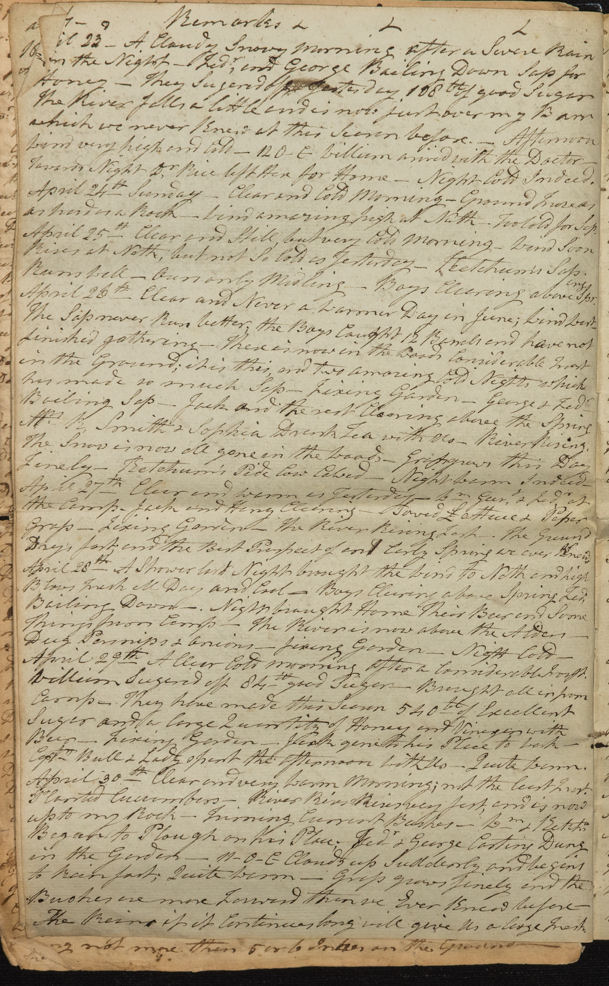 Remarks &
23 - A Cloudy Snowy morning after a Severe Rain
in the Night - Fedr. and George Boiling Down Sap for
Honey - They Sugared off yesterday 108 lb of good Sugar
The River falls a little and is now just over my Barn
which we never Knew at this Season before. - Afternoon
wind very high and cold - N O E William arrived with the Doctor -
Towards Night Dr. Rice left Her for Home - Night Cold Indeed.
April 24th Sunday - Clear and Cold Morning - Ground froze as
as hard as a Rock - wind amazing high at Noth - Too Cold for Sap
April 25th Clear and Still, but very Cold morning - Wind Soon
Rises at Noth, but not So Cold as yesterday - Ketchum's Sap
Runs well - Ours only Midling - Boys Clearing above Spring
April 26th Clear and Never a warmer Day in June; wind West
The Sap never Run better, the Boys Caught 12 Barrels and have not
finished gathering - There is now in the woods Considerable frost
in the Ground; it is this, and two amazing Cold Nights which
has made so much Sap - fixing Garden - George & Fedr.
Boiling Sap - Jack and the rest Clearing above the Spring
Mrs. Smith & Sophia Drank Tea with Us - River Rising
The Snow is now all gone in the woods - Grass grows this Day
finely - Ketchum's Pide Cow Calved - Night warm Indeed
April 27th Clear and warm as yesterday - Wm. Geo. & Fedr. at
the Camp - Jack and Henry Clearing - Sowed Lettuce & Peper
Grass - Fixing Garden - The River Rising fast - the Ground
Dry's fast, and the Best Prospect of an Early Spring we ever Knew
April 28th A Shower last Night brought the wind to Noth and high
Blows fresh all Day and Cool - Boys Clearing above Spring, Fedr.
Boiling Down - Night brought Home Their Beer and Some
things from Camp - The River is now above the Alders -
Dug Parsnips & Onions - fixing Garden - Night Cold -
April 29th A Clear Cold morning after a Considerable frost
William Sugared off 84 lb good Sugar - Brought all in from
Camp - They have made this Season 540 lb of Excellent
Sugar and a large Quantity of Honey and Vinegar with
Beer - Fixing Garden - Jack gone to his Place to work -
Captn. Bull & Lady spent the afternoon with Us - Quite warm
April 30th Clear and very warm Morning; not the least frost
Planted Cucumbers - River Rises very fast, and is now
up to my Rock - Triming Currant Bushes - Wm. & Ketchm.
Began to Plough on his Place. Fedr. & George Carting Dung
in the Garden - N O E Clouds up Suddenly and begins
to Rain fast; Quite warm - Grass grows finely and the
Bushes are more forward then we Ever Knew before -
The Rain if it Continues long will give Us a large fresh
not more then 5 or 6 Inches on the Ground